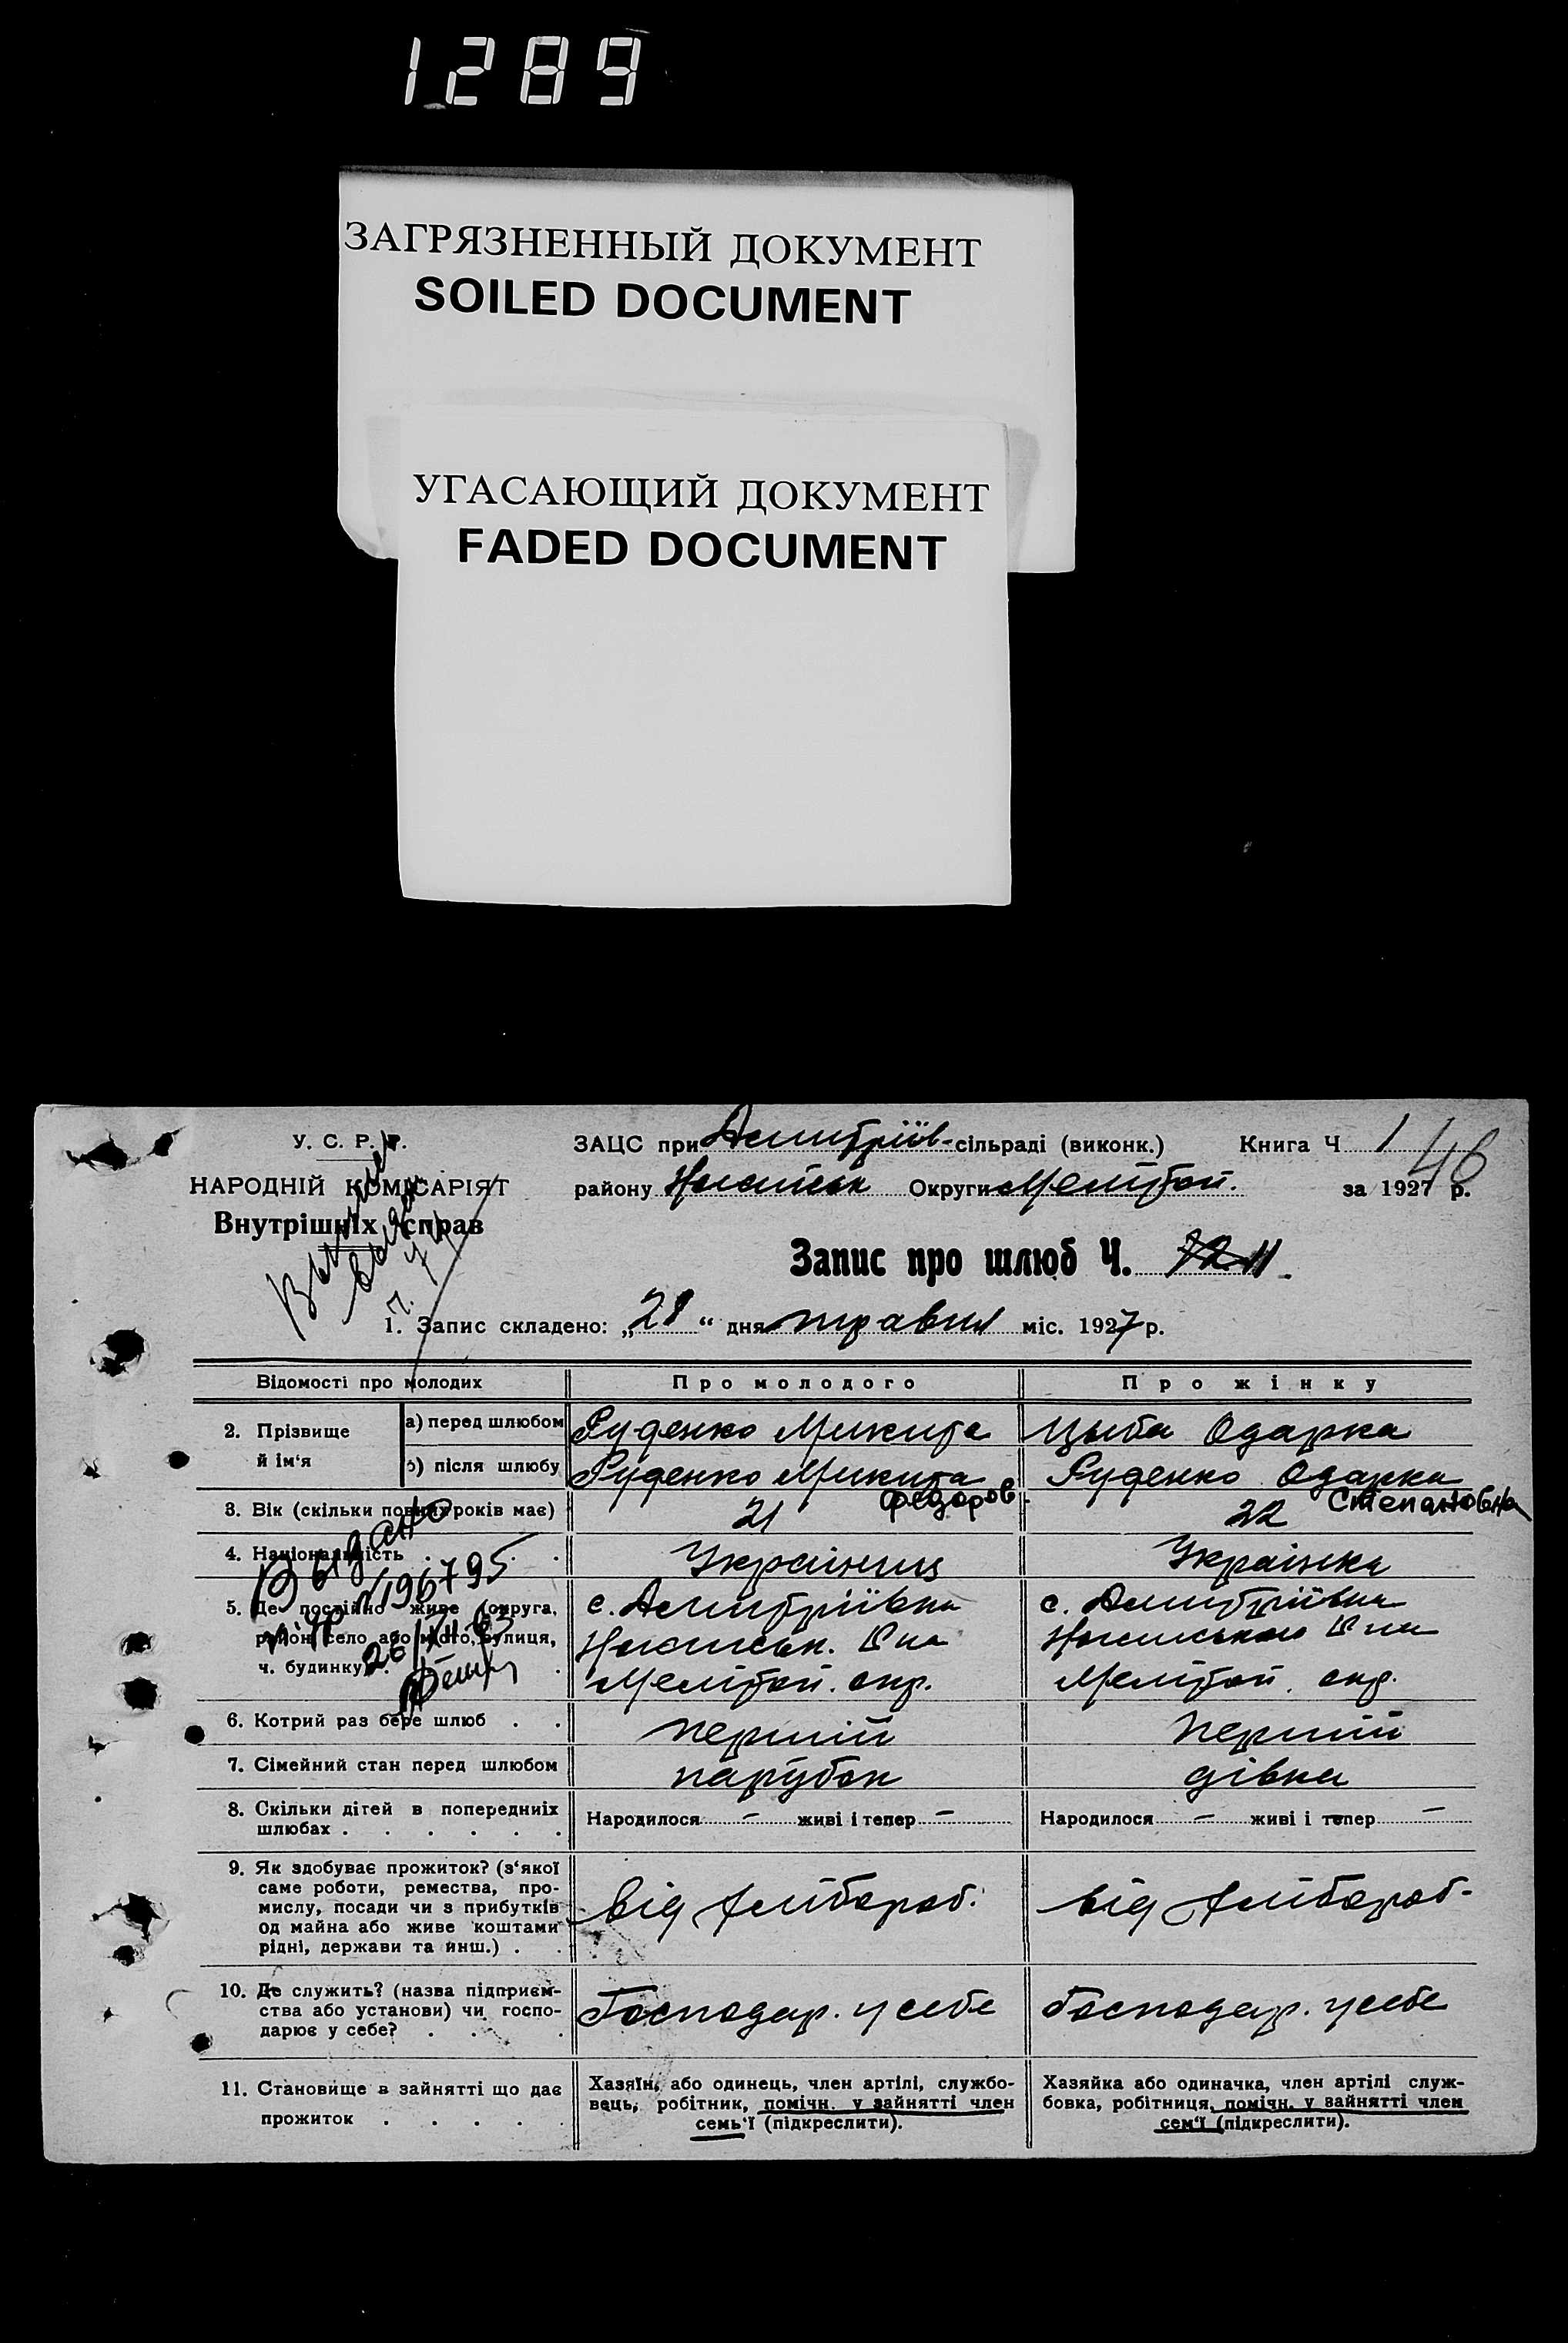 1289
ЗАГРЯЗНЕННЫЙ ДОКУМЕНТ
SOILED DOCUMENT
УГАСАЮЩИЙ ДОКУМЕНТ
FADED DOCUMENT
У. С. Р. Р.
НАРОДНІЙ КОМІСАРІЯТ
Внутрішніх справ
ЗАЦС при Дмитріїв- сільраді (виконк.) Книга Ч 1
46
району Округи Мелітоп. за 1927 р.
Запис про шлюб Ч. 11
1. Запис складено: „21“ дня травня міс. 1927 р.
Відомості про молодих Про молодого Про жінку
2. Прізвище й ім‘я
а) перед шлюбом Руденко Микита Цыба Одарка
б) після шлюбу Руденко Микита Федоров. Руденко Одарка Степановна
3. Вік (скільки повних років має) 21 22
4. Національність . . . . Українець Українка
Выдано
№196795
5. Де постійно живе (округа, с. Дмитріївка с. Дмитріївка
район, село або місто, вулиця,
ч. будинку) . Мелітоп. окр. Мелітоп. окр.
6. Котрий раз бере шлюб . . перший перший
7. Сімейний стан перед шлюбом парубок дівка
8. Скільки дітей в попередниіх
шлюбах . . . . . . Народилося — живі і тепер — Народилося — живі і тепер —
9. Як здобуває прожиток? (з‘якої
саме роботи, ремества, про-
мислу, посади чи з прибутків
од майна або живе коштами
рідні, держави та инш.) . . від хлібороб. від хлібороб.
10. Де служить? (назва підприєм-
ства або установи) чи госпо-
дарює у себе? . . . Господар. у себе Господар. у себе
11. Становище в зайнятті що дає
прожиток . . . . .
Хазяїн, або одинець, член артілі, службо-
вець, робітник, помічн. у зайнятті член
семь‘ї (підкреслити).
Хазяйка або одиначка, член артілі служ-
бовка, робітниця, помічн. у зайнятті член
сем‘ї (підкреслити).